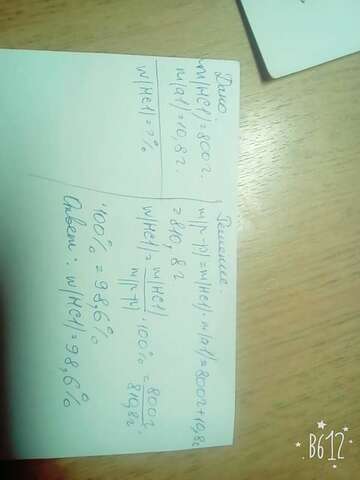 Дано:
m(HCl)=800г.
m(al)=10,8г.
w(HCl)=?%
Решение.
m(р-р)=m(HCl)·m(al)=800г+10,8г
=810,8г
w(HCl)=m(HCl)/m(р-р)·100%=800г/810,8г·
·100%=98,6%
Ответ: w(HCl)=98,6%
B612